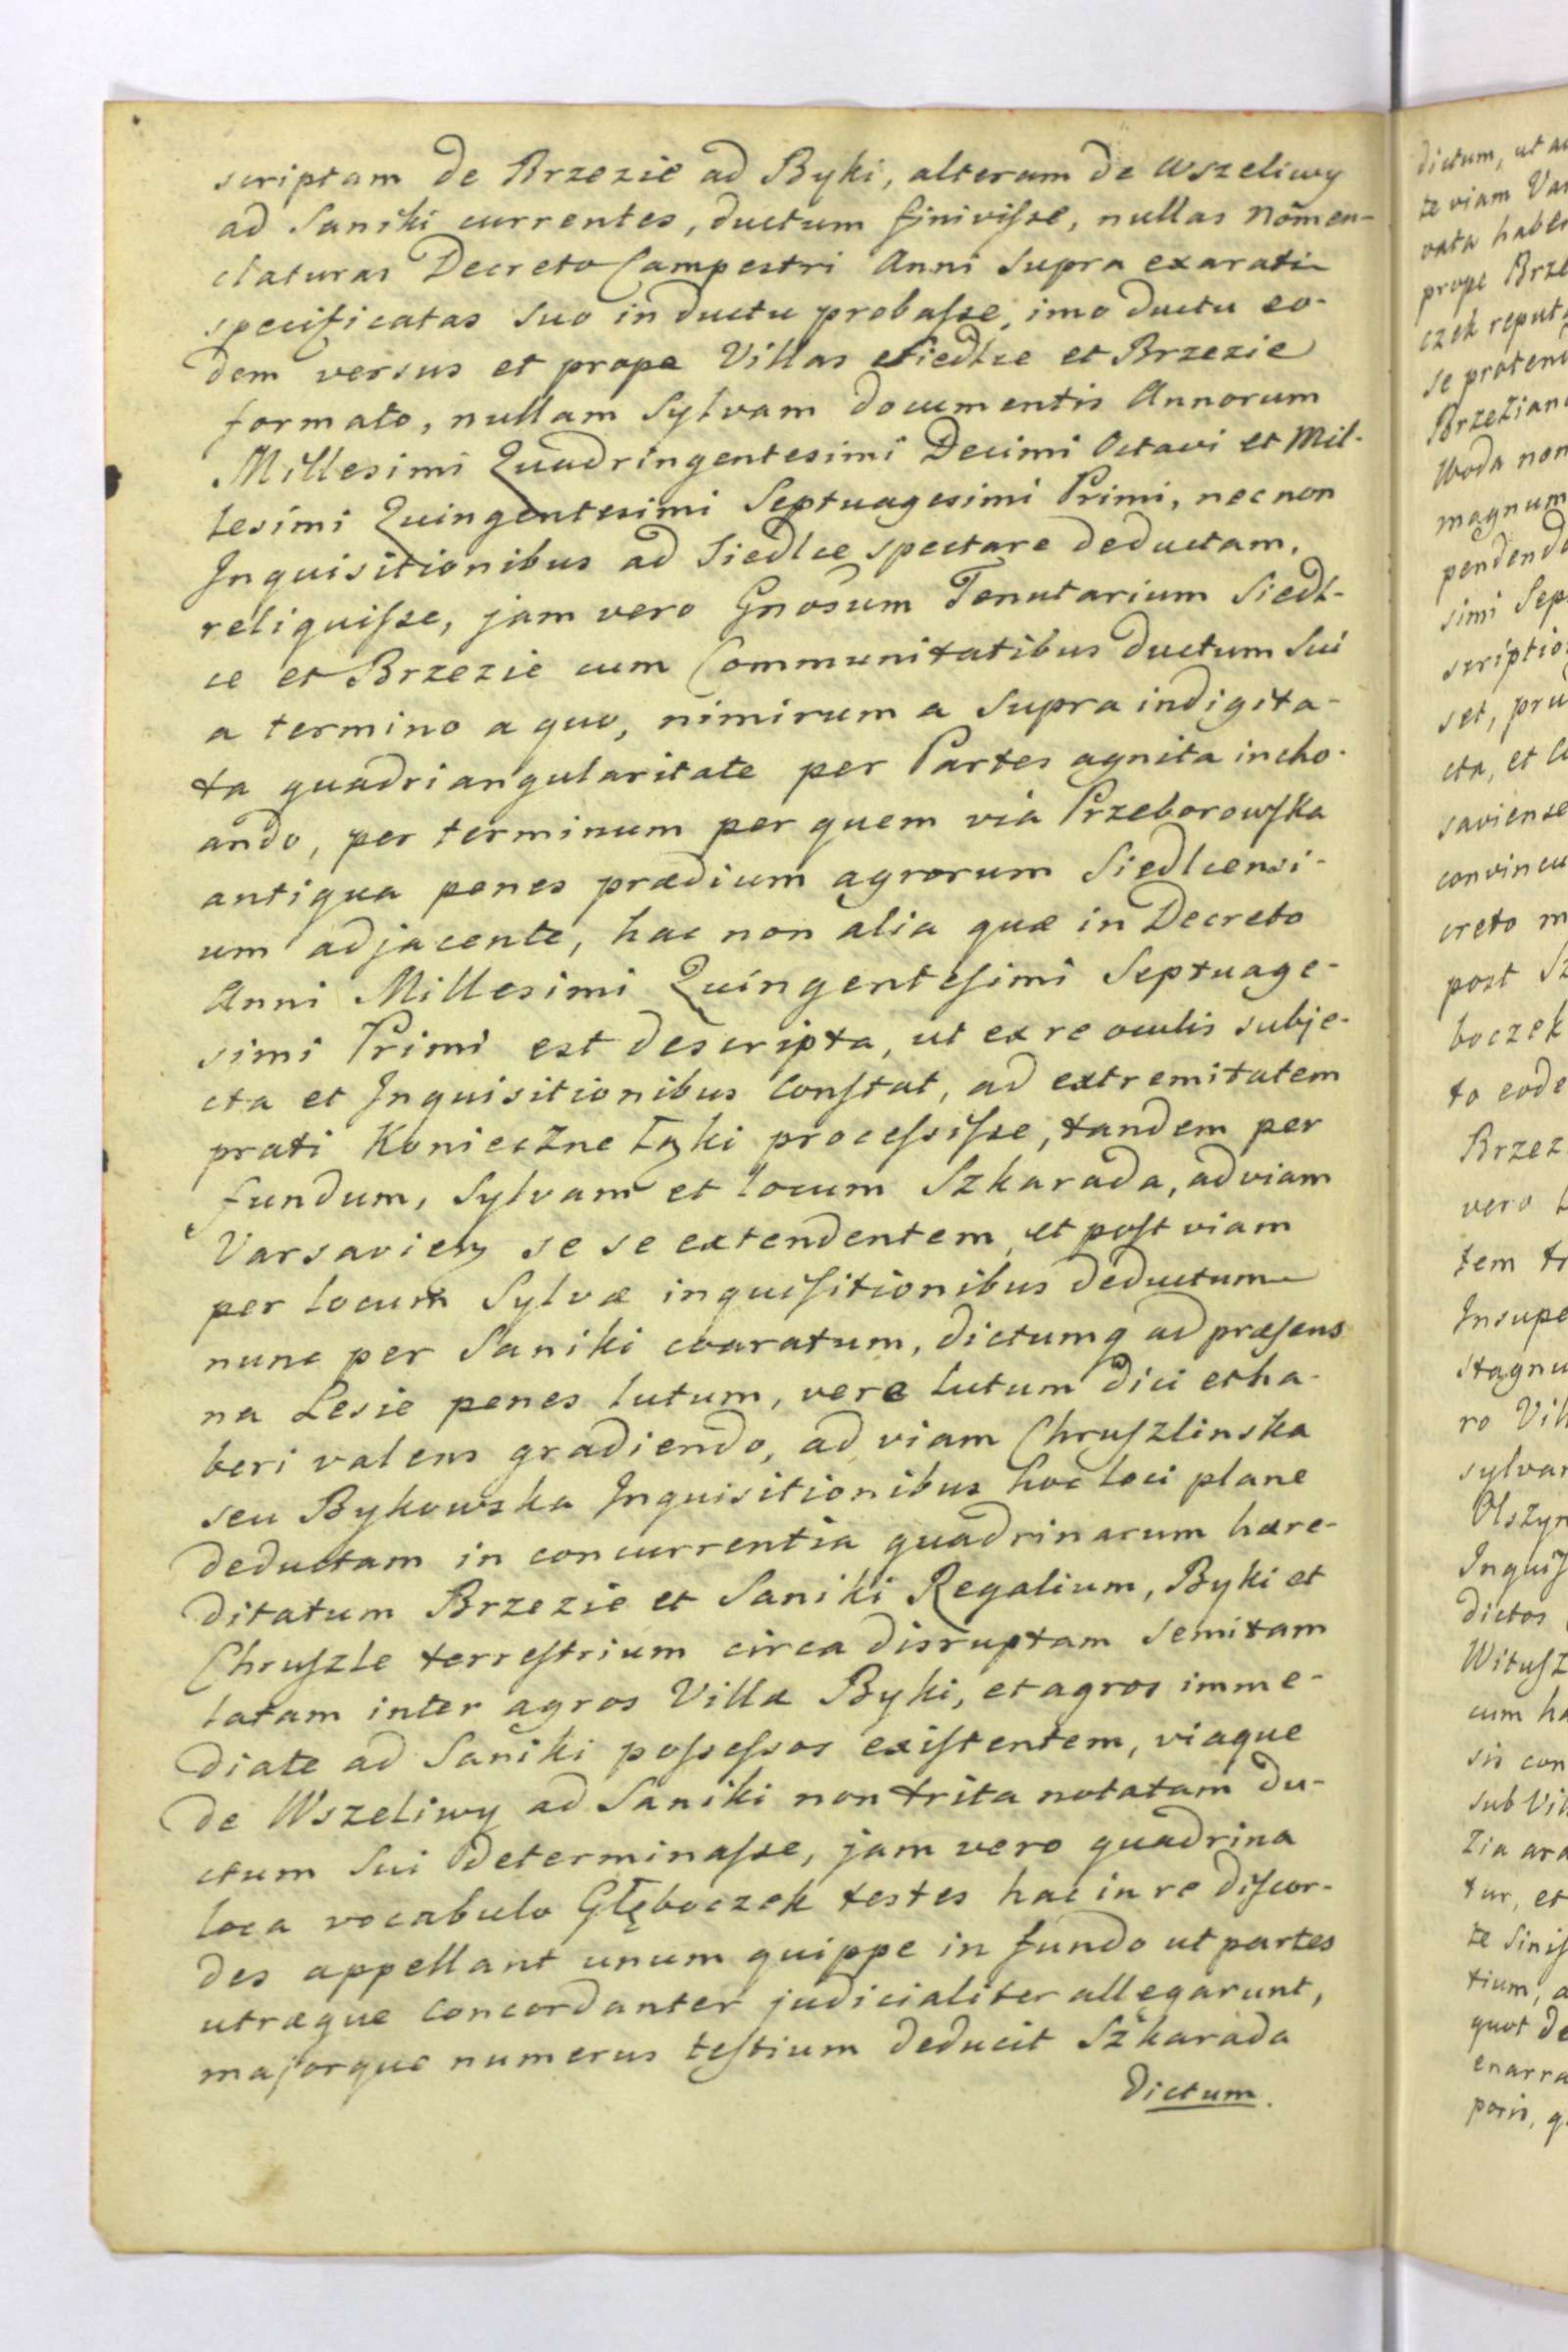 scriptam de Brzezie ad Byki, alteram de Wszeliwy
ad Saniki currentes, ductum finivisse, nullas Nomen-
claturas Decreto Campestri Anni supra exarati
specificatas suo in ductu probasse, imo ductu eo-
dem versus et prope Villas Siedlce et Brzezie
formato, nullam Sylvam documentis Annorum
Millesimi Quadringentesimi Decimi Octavi et Mil-
lesimi Quingentesimi Septuagesimi Primi, necnon
Inquisitionibus ad Siedlce spectare deductam,
reliquisse, jam vero Gnosum Tenutarium Siedl-
ce et Brzezie cum Communitatibus ductum sui
a termino a quo, nimirum a supra indigita-
ta quadriangularitate per Partes agnita incho-
ando, per terminum per quem via Przeborowska
antiqua penes prædium agrorum Siedlcensi-
um adjacente, hac non alia quæ in Decreto
Anni Millesimi Quingentesimi Septuage-
simi Primi est descripta, ut ex re oculis subje-
cta et Inquisitionibus Constat, ad extremitatem
prati Konieczne Łąki processisse, tandem per
fundum, Sylvam et locum Szkarada, ad viam
Varsavien se se extendentem, et post viam
per locum Sylvæ inquisitionibus deductum
nunc per Saniki exaratum, dictumq ad præsens
na Lesie penes lutum, vere lutum dici et ha-
beri valens gradiendo, ad viam Chruszlinska
seu Bykowska Inquisitionibus hoc loci plane
deductam in concurrentia quadrinarum hære-
ditatum Brzezie et Saniki Regalium, Byki et
Chruszle terrestrium circa disruptam semitam
latam inter agros Villæ Byki, et agros imme-
diate ad Saniki possessos existentem, viaque
de Wszeliwy ad Saniki non trita notatam du-
ctum sui determinasse, jam vero quadrina
loca vocabulo Głęboczek testes hac in re discor-
des appellant unum quippe in fundo ut partes
utræque Concordanter judicialiter allegarunt,
majorque numerus testium deducit Szkarada
Dictum.